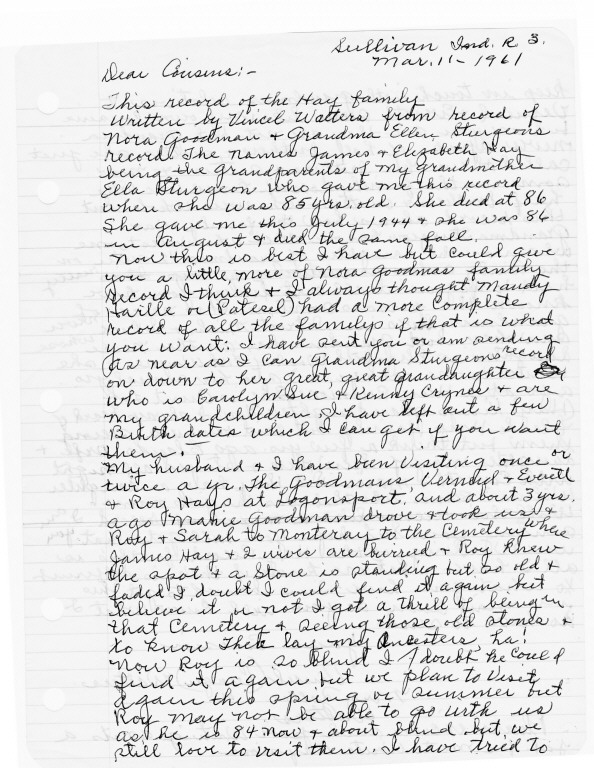 Sullivan Ind. R 3.
Mar. 11 - 1961
Dear Cousins:-
This record of the Hay family
Written by Vincel Walters from record of
Nora Goodman & Grandma Ellen Sturgeons
record The names James & Elizabeth Hay
being the grandparents of my grandmother
Ella Sturgeon who gave me this record
when she was 85 yrs. old. She died at 86
She gave me this July 1944 & she was 86
in august & died the same fall.
Now this is best I have but could give
you a little more of Nora Goodmas family
record I think & I always thought Maudy
Haille or (Patesel) had a more complete
record of all the familys if that is what
you want: I have sent you or am sending
as near as I can Grandma Sturgeons record
on down to her great, great grandaughter
who is Carolyn Sue & Kenny Crynes & are
my grandchildren. I have left out a few
Birth dates which I can get if you want
them.
My husband & I have been visiting once or
twice a yr. The Goodmans Verneid & Everett
& Roy Hays at Logonsport. and about 3 yrs.
ago Marie Goodman drove & took us &
Roy & Sarah to Monteray to the Cemetery where
James Hay & 2 wives are burried & Roy knew
the spot & a Stone is standing but so old &
faded I doubt I could find it again but
believe it or not I got a thrill of being in
that Cemetery & seeing those old stones &
to know There lay my Ancesters, ha!
Now Roy is so blind I doubt he could
find it again but we plan to visit
again this spring or summer but
Roy may not be able to go with us
as he is 84 now & about blind but we
still love to visit them. I have tried to